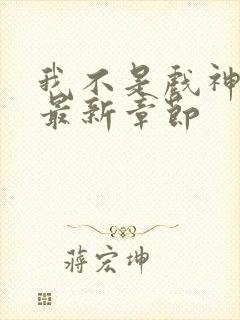 我不是戏神
最新章节
蒋宏坤